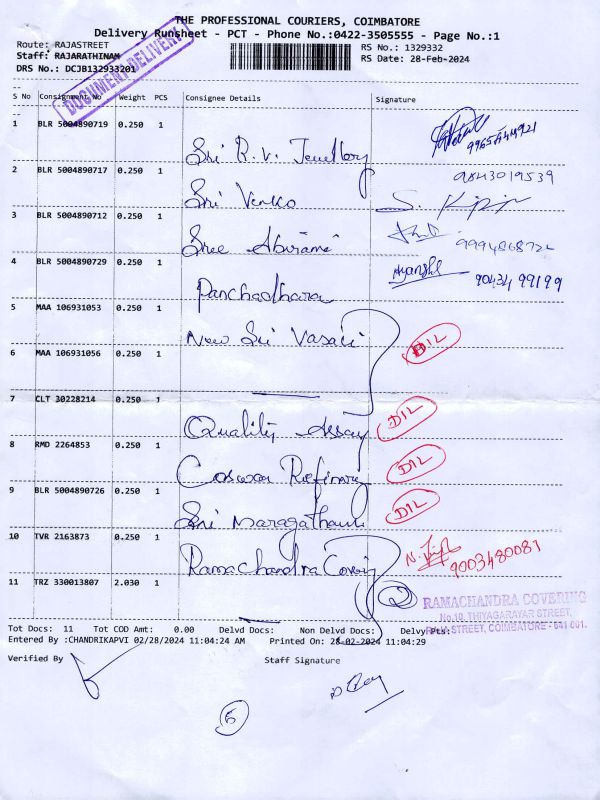 THE PROFESSIONAL COURIERS, COIMBATORE
Delivery Runsheet - PCT - Phone No.:0422-3505555 - Page No.:1
Route: RAJASTREET
RS No.: 1329332
Staff: RAJARATHINAM
RS Date: 28-Feb-2024
DRS No.: DCJB132933201
DOCUMENT DELIVERY
S No Consignment No Weight PCS Consignee Details Signature
1 BLR 5004890719 0.250 1 Sri R.V. Jewellery 9965444921
2 BLR 5004890717 0.250 1 Sri Venko 9843019539
3 BLR 5004890712 0.250 1 Sree Abirami
4 BLR 5004890729 0.250 1 Panchadhara 90434 99199
5 MAA 106931053 0.250 1 New Sri Vasavi
6 MAA 106931056 0.250 1 DIL
7 CLT 30228214 0.250 1 Quality Assay DIL
8 RMD 2264853 0.250 1 Refinery DIL
9 BLR 5004890726 0.250 1 Sri DIL
10 TVR 2163873 0.250 1 Ramachandra Covering 9003480081
11 TRZ 330013807 2.030 1 2
RAMACHANDRA COVERING
No.10, THIYAGARAYAR STREET,
RAJA STREET, COIMBATORE - 641 001.
Tot Docs: 11 Tot COD Amt: 0.00 Delvd Docs: Non Delvd Docs: Delvy Pts:
Entered By :CHANDRIKAPVI 02/28/2024 11:04:24 AM Printed On: 28-02-2024 11:04:29
Verified By Staff Signature
6